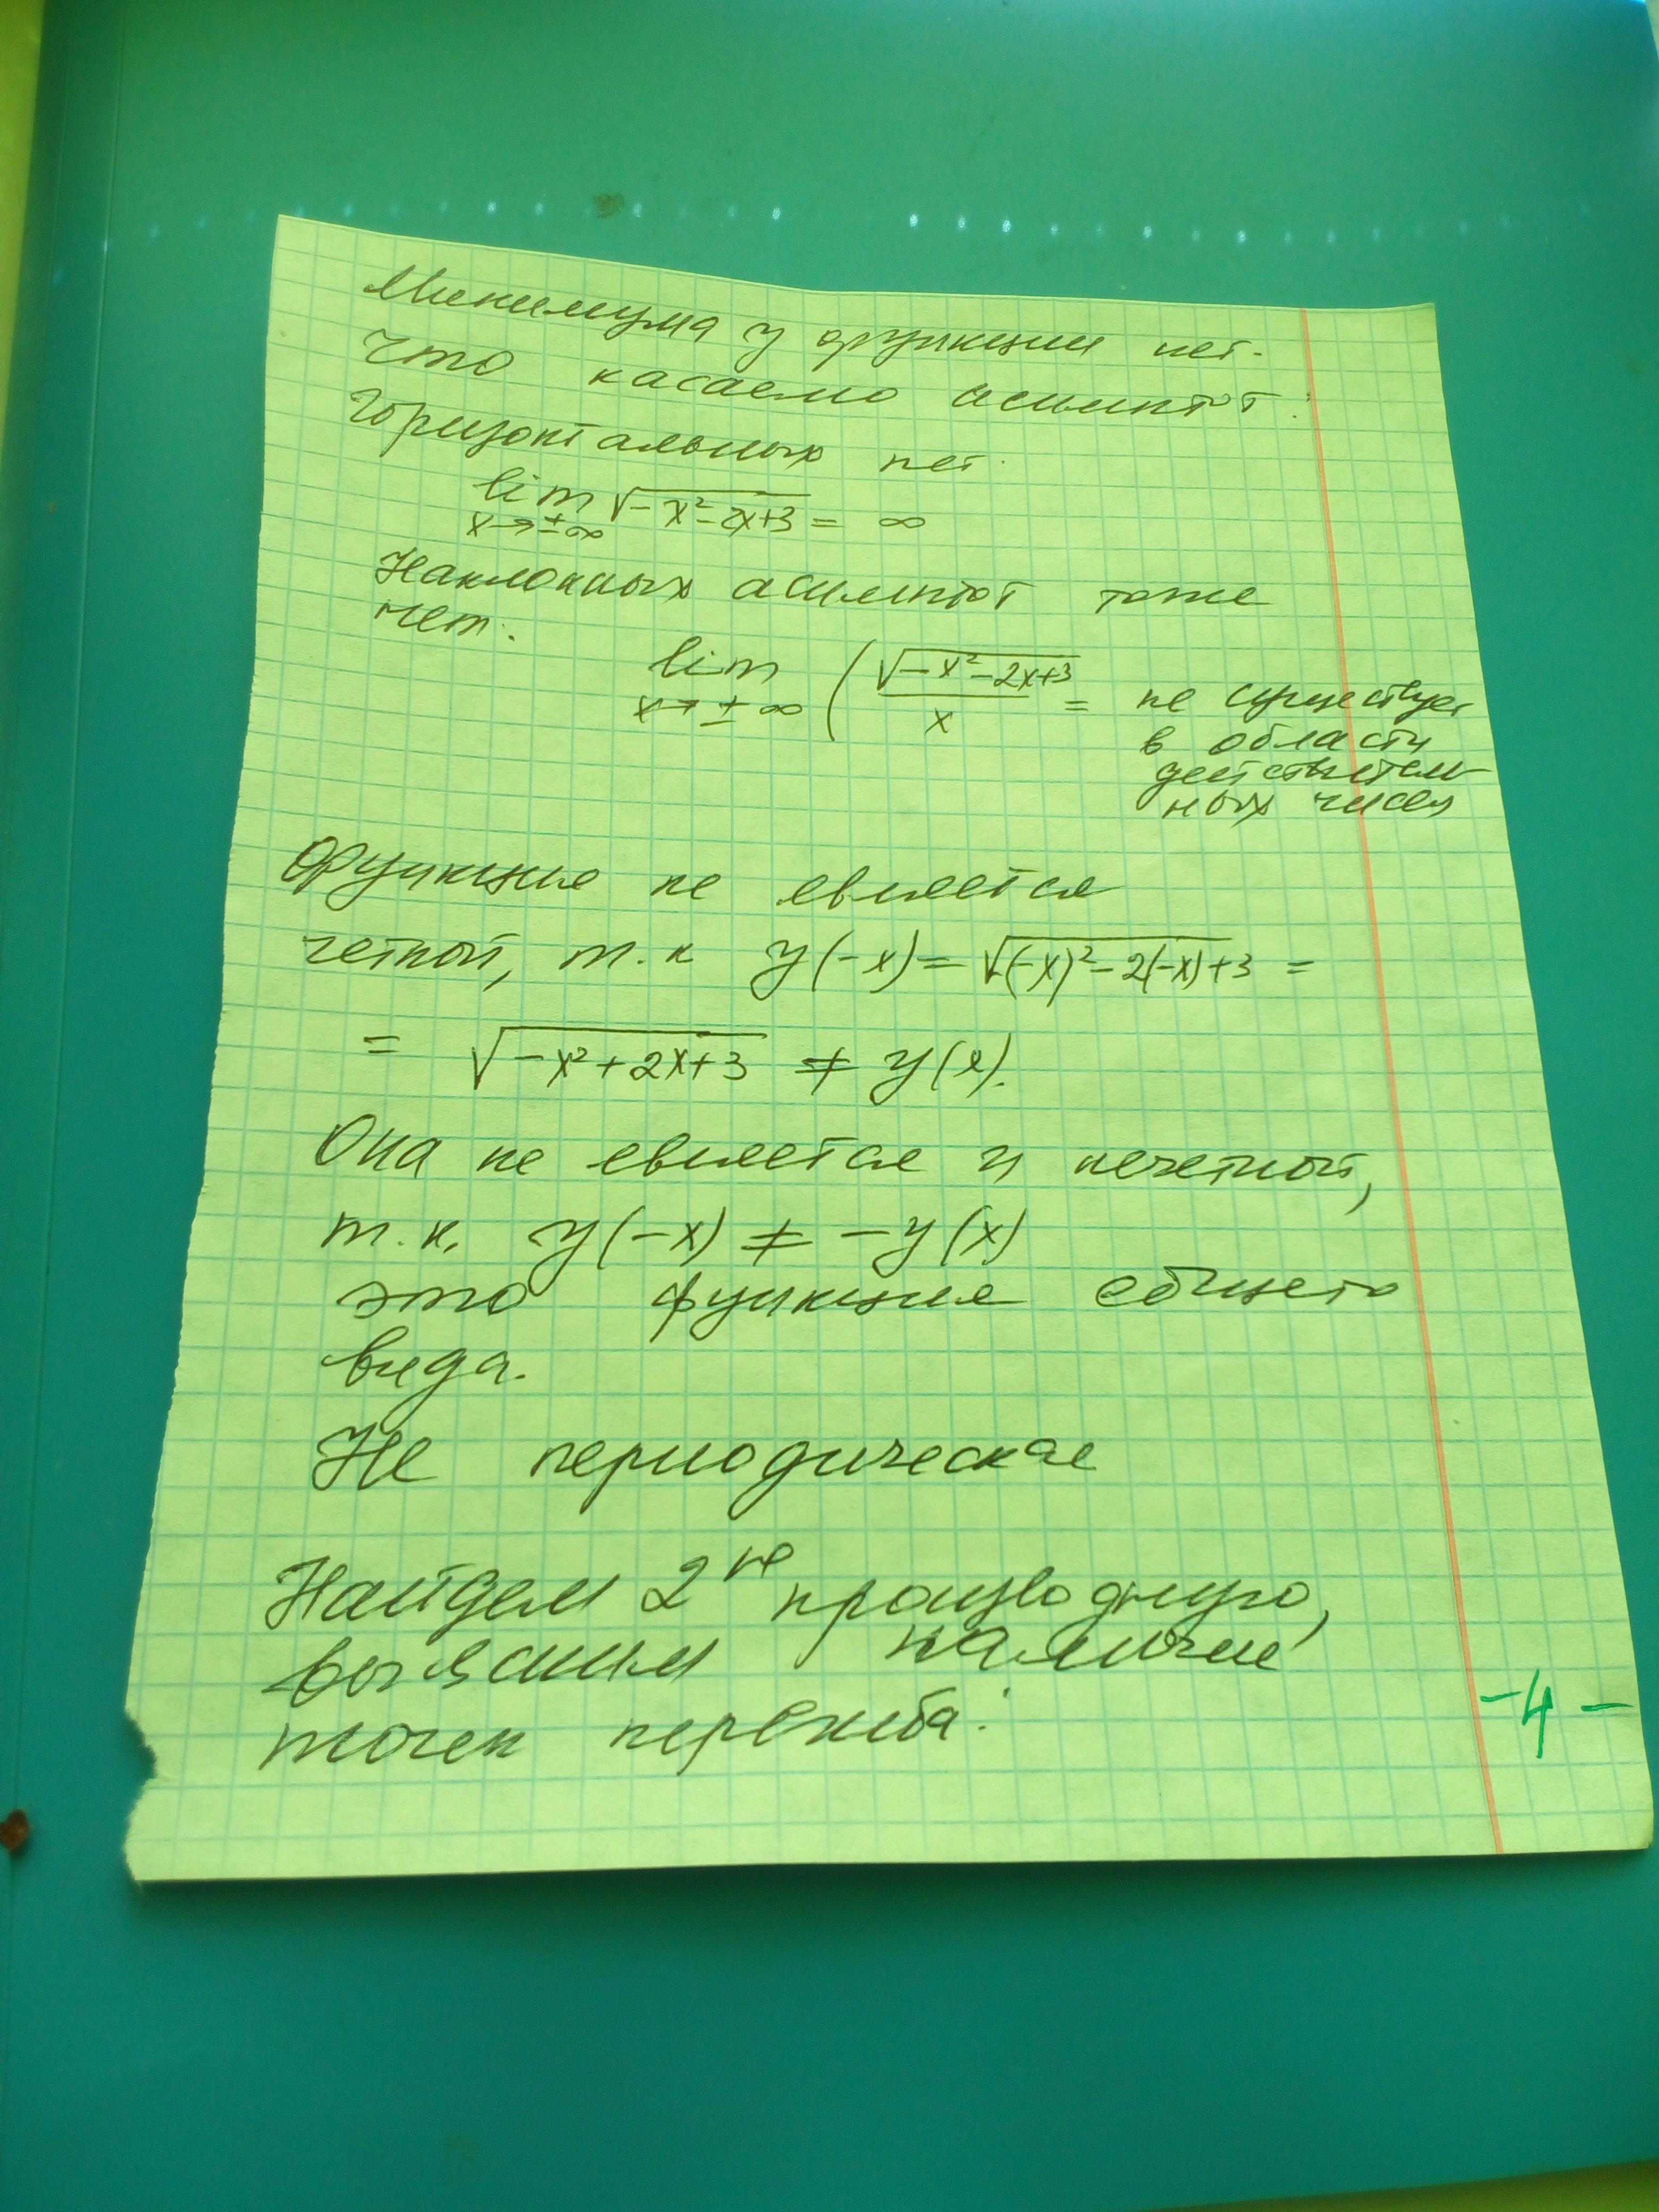 Минимума у функции нет.
Что касаемо асимптот:
Горизонтальных нет.
lim √(-x²-2x+3) = ∞
x→±∞
Наклонных асимптот тоже
нет.
lim (√(-x²-2x+3)/x = не существует
x→±∞
в области
действитель
ных чисел
Функция не является
четной, т.к y(-x) = √((-x)²-2(-x)+3) =
= √(-x²+2x+3) ≠ y(x).
Она не является и нечетной,
т.к. y(-x) ≠ -y(x)
это функция общего
вида.
Не периодическая
Найдем 2ую производную,
выясним наличие
точек перегиба:
-4-